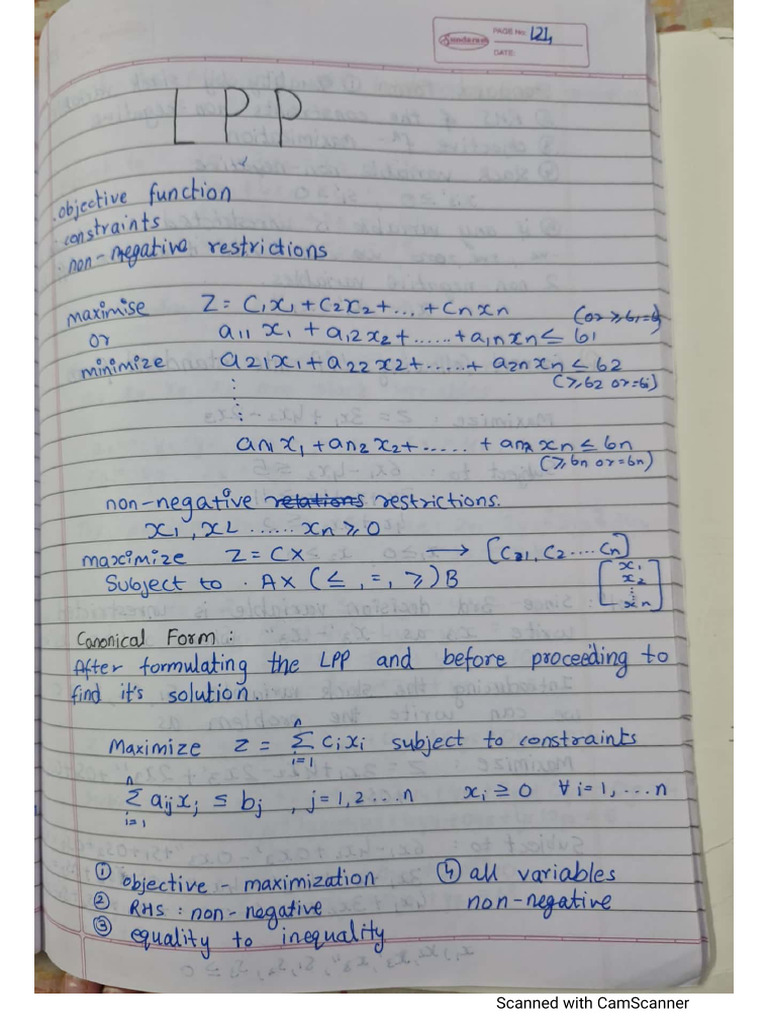 Sundaram PAGE No. 121,
DATE:
LPP
.objective function
.constraints
.non-negative restrictions
maximise Z = C1x1 + C2x2 + ... + Cnxn
or a11 x1 + a12 x2 + ...... + a1n xn ≤ b1 (or ≥, b1, = b)
minimize a21x1 + a22 x2 + ...... + a2n xn ≤ b2
(≥, b2 or = bi)
⋮
an1 x1 + an2 x2 + ...... + ann xn ≤ bn
(≥, bn or = bn)
non-negative ~~relations~~ restrictions.
x1, x2 ...... xn ≥ 0
maximize Z = CX → [C1, C2 .... Cn]
Subject to . AX (≤, =, ≥) B [x1 x2 ⋮ xn]
Canonical Form :
After formulating the LPP and before proceeding to
find it's solution.
Maximize Z = n∑i=1 cixi subject to constraints
n∑i=1 aijxj ≤ bj , j = 1, 2 ... n xi ≥ 0 ∀ i = 1, ... n
① objective - maximization ④ all variables
② RHS : non-negative non-negative
③ equality to inequality
Scanned with CamScanner